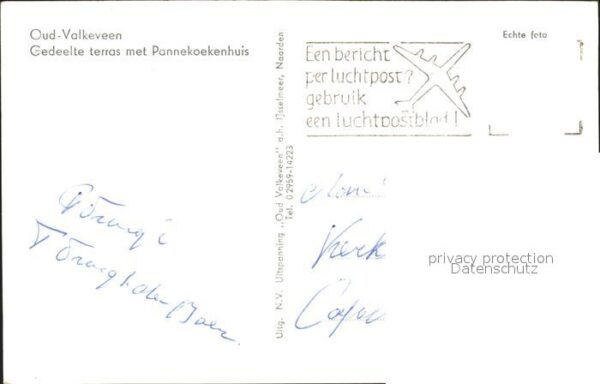 Oud-Valkeveen
Gedeelte terras met Pannekoekenhuis
Echte foto
Een bericht
per luchtpost?
gebruik
een luchtpostblad!
Uitg. N.V. Uitspanning „Oud Valkeveen” a.h. IJsselmeer, Naarden
Tel. 02959-14223
Kerk
privacy protection
Datenschutz